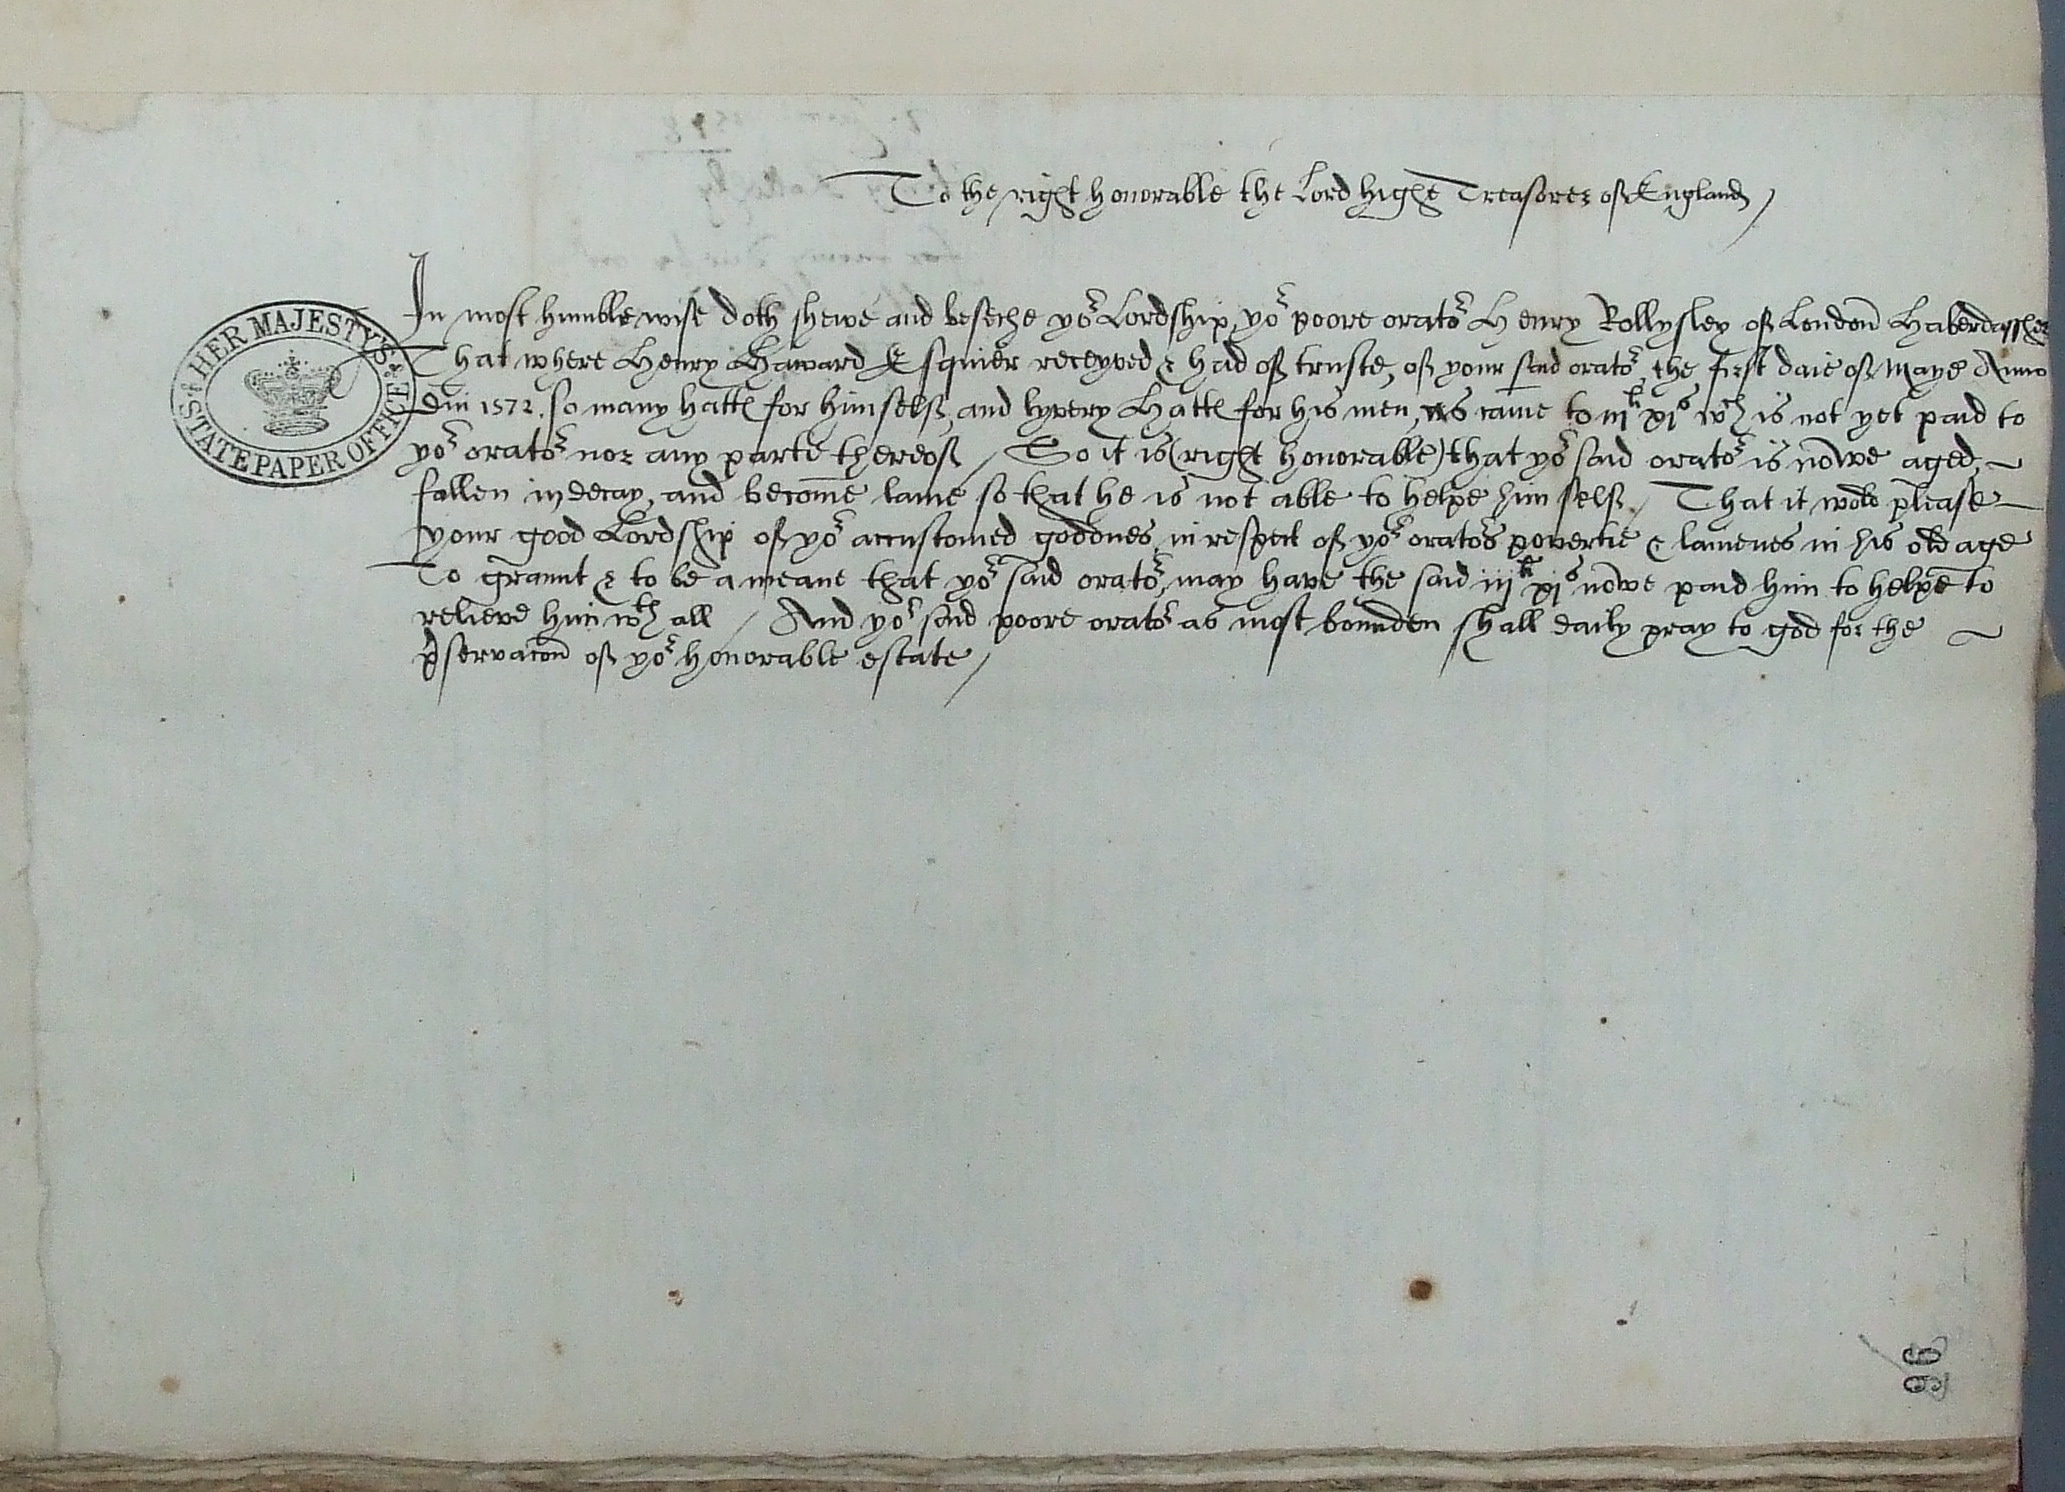 To the right honorable the Lord highe Treasorer of England /
In most humble wise doth shewe and beseche yor Lordship yor poore orator Henry Rollysley of London Haberdassher
That where Henry Haward Esquier receyved & had of truste, of your said orator, the first daie of Maye Anno
Dni 1572. so many hattes for himself, and lyvery hattes for his men, as came to iijli xjs wch is not yet paid to
yor orator nor any parte thereof / So it is (right honorable) that yor said orator is nowe aged,
fallen in decay, and become lame so that he is not able to helpe him self / That it wold please
your good Lordship of yor accustomed goodnes, in respect of yor orators povertie & lamenes in his old age
To graunt & to be a meane that yor said orator may have the said iijli xjs nowe paid him to helpe to
relieve him wth all / And yor said poore orator as most bounden shall daily pray to god for the
pservacon of yor honorable estate /
HER MAJESTY'S
STATE PAPER OFFICE
96